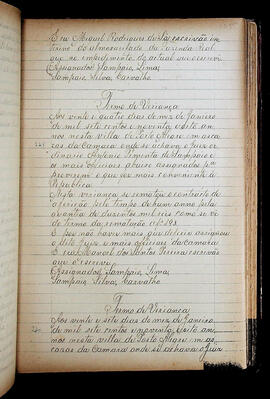 Eu Miguel Rodrigues da Luz escrivão in-
terino do almoxarifado da fazenda Real
que no impedimento do actual escrevi
Assignados Sampaio, Lima,
Sampaio, Silva, Carvalho
Termo de Veriança
Aos vinte e quatro dias do mez de Janeiro
de mil sete centos e noventa e oito an-
nos nesta villa de Porto Alegre em cas-
as da Camara onde se achava o juiz or-
dinario Antonio Pimenta de Sampaio e
os mais officiaes abaixo assignados pa-
proverem o que vez mais conveniente á
Republica
Nesta veriança se rematou o contracto de
aferição pelo tempo de hum anno pela
quantia de duzentos mil reis como se vê
do termo da rematação a
E por não haver mais que deferir assignou
o dito Juiz e mais officiaes da camara
E eu Manoel dos Santos Pereira escrivão
que o escrevi
Assignados Sampaio, Lima,
Sampaio, Silva, Carvalho
Termo de Veriança
Aos vinte e sete dias do mez de Janeiro
de mil sete centos e noventa e oito an-
nos nesta villa de Porto Alegre em as
cazas da Camara onde se achava o Juiz